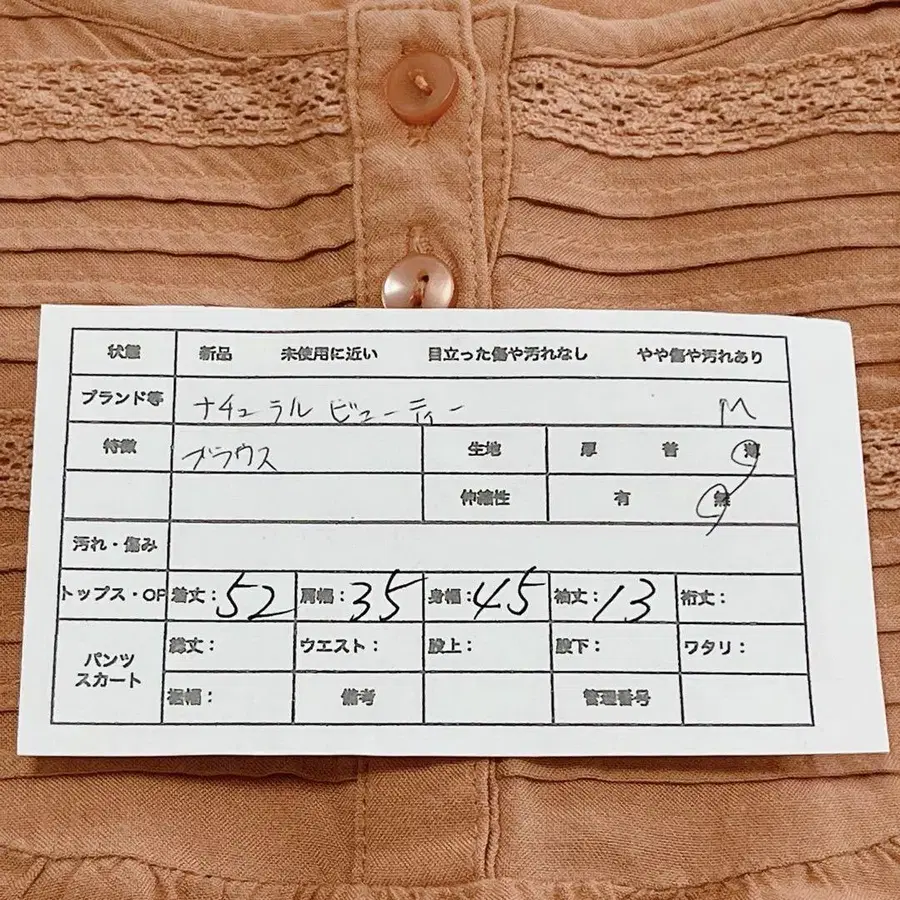 状態 新品 未使用に近い 目立った傷や汚れなし やや傷や汚れあり
ブランド等 ナチュラル ビューティー M
特徴 ブラウス 生地 厚 普 薄
伸縮性 有 無
汚れ・傷み
トップス・OP 着丈：52 肩幅：35 身幅：45 袖丈：13 裄丈：
パンツ
スカート
総丈： ウエスト： 股上： 股下： ワタリ：
裾幅： 備考 管理番号